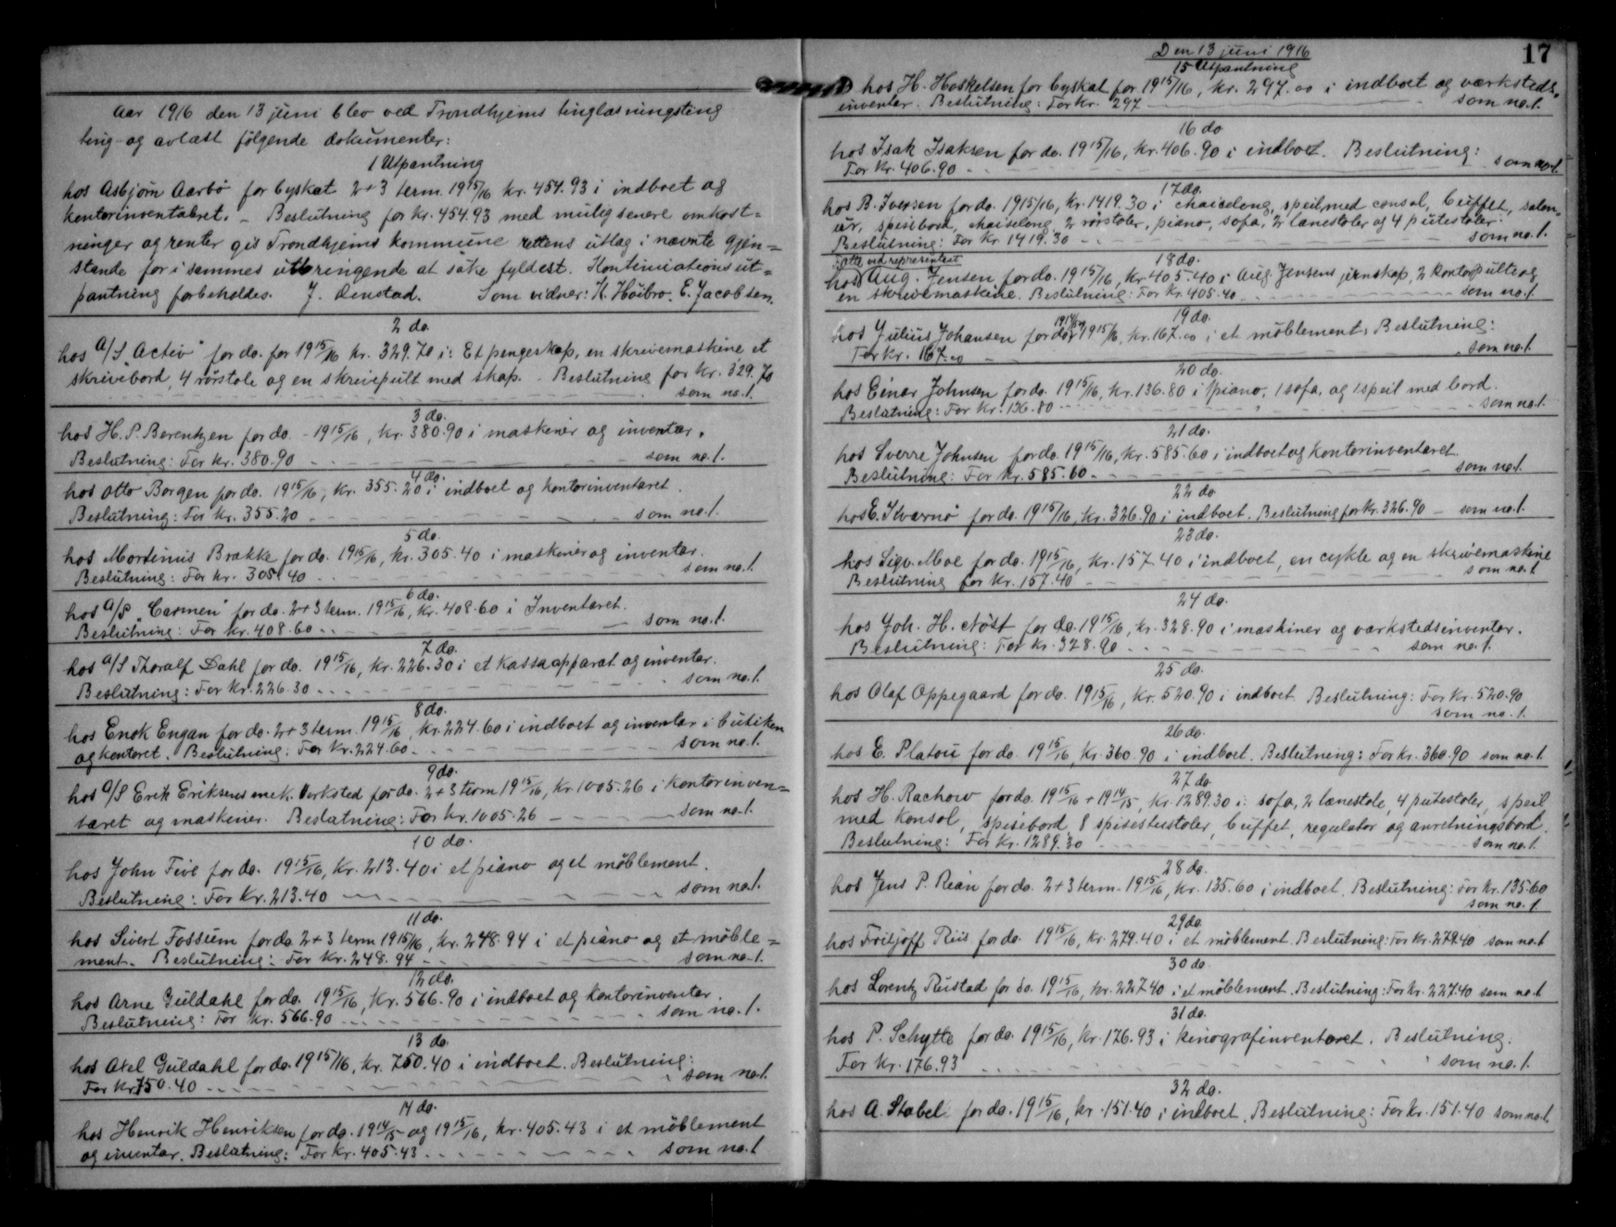 Aar 1916 den 13 juni blev ved Trondhjems tinglæsningsting
ting- og avlæst følgende dokumenter:
1 Utpantning
hos Asbjørn Aarbø for byskat 2+3 term. 1915/16 kr. 454.93 i indboet og
kontorinventaret. – Beslutning for kr. 454.93 med mulig senere omkost=
ninger og renter gis Trondhjems kommune rettens utlag i nævnte gjen=
stande for i sammes utbringende at søke fyldest. Kontinuationsut=
pantning forbeholdes. J. Renstad. Som vidner: K. Høibro. E. Jacobsen.
2 do.
hos A/S "Activ" for do. for 1915/16 kr. 329.70 i: Et pengeskap, en skrivemaskine et
skrivebord, 4 rørstole og en skrivepult med skap. - Beslutning for kr. 329.70
som no. 1.
3 do.
hos H. P. Berentzen for do. - 1915/16, kr. 380.90 i maskiner og inventar.
Beslutning: For kr. 380.90 som no. 1.
4 do.
hos Otto Borgen for do. 1915/16, kr. 355.20 i indboet og kontorinventaret.
Beslutning: For kr. 355.20 som no. 1.
5 do.
hos Mortinus Brække for do. 1915/16, kr. 305.40 i maskiner og inventar.
Beslutning: For kr. 305.40 som no. 1
6 do.
hos A/S "Carmen" for do. 2+3 term. 1915/16, kr. 408.60 i Inventaret.
Beslutning: For kr. 408.60 som no. 1.
7 do.
hos A/S Thoralf Dahl for do. 1915/16, kr. 226.30 i et kassaapparat og inventar.
Beslutning: For kr. 226.30 som no. 1.
8 do.
hos Enok Engan for do. 2+3 term. 1915/16, kr. 224.60 i indboet og inventar i butiken
og kontoret. Beslutning: For kr. 224.60. som no. 1.
9 do.
hos A/S Erik Eriksens mek. Verksted for do. 2+3 term 1915/16, kr. 1005.26 i kontorinven=
taret og maskiner. Beslutning: For kr. 1005.26 som no. 1.
10 do.
hos John Five for do. 1915/16, kr. 213.40 i et piano og et møblement.
Beslutning: For kr. 213.40 som no. 1.
11 do.
hos Sivert Fossum for do. 2+3 term 1915/16, kr. 248.94 i et piano og et møble=
ment. Beslutning: For kr. 248.94 som no. 1.
12 do.
hos Arne Guldahl for do. 1915/16, kr. 566.90 i indboet og kontorinventar.
Beslutning: For kr. 566.90 som no. 1.
13 do
hos Axel Guldahl for do. 1915/16, kr. 750.40 i indboet. Beslutning:
For kr. 750.40 som no. 1.
14 do.
hos Henrik Henriksen for do. 1914/15 og 1915/16, kr. 405.43 i et møblement
og inventar. Beslutning: For kr. 405.43 som no. 1
Den 13 juni 1916
17
15 Utpantning
hos H. Haskelsen for byskat for 1915/16, kr. 297.00 i indboet og værksteds=
inventar. Beslutning: For kr. 297 som no. 1.
16 do
hos Isak Isaksen for do. 1915/16, kr. 406.90 i indboet. Beslutning:
For kr. 406.90 som no. 1.
17 do.
hos B. Iversen for do. 1915/16, kr. 1419.30 i chaiselong, speil med consol, buffet, salon=
ur, spisebord, chaiselong, 2 rørstoler, piano, sofa, 2 lænestoler og 4 putestoler.
Beslutning: For kr 1419.30 som no. 1.
18 do.
ved repræsentant
hos Aug. Jensen for do. 1915/16, kr. 405.40 i Aug Jensens jernskap, 2 kontorpulte og
en skrivemaskine. Beslutning: For kr. 405.40 som no. 1.
19 do.
hos Julius Johansen for do. 1914/15 og 1915/16, kr. 167.00 i et møblement. Beslutning:
For kr. 167.00 som no. 1.
20 do.
hos Einar Johnsen for do. 1915/16, kr. 136.80 i 1 piano, 1 sofa, og 1 speil med bord.
Beslutning: For kr. 136.80 som no. 1.
21 do.
hos Sverre Johnsen for do. 1915/16, kr. 585.60 i indboet og kontorinventaret.
Beslutning: For kr. 585.60. som no. 1.
22 do
hos E. Kværnø for do. 1915/16, kr. 326.90 i indboet. Beslutning for kr. 326.90 – som no. 1.
23 do.
hos Sigv. Moe for do. 1915/16, kr. 157.40 i indboet, en cykle og en skrivemaskine
Beslutning for kr. 157.40 som no. 1
24 do.
hos Joh. H. Nøst for do. 1915/16, kr. 328.90 i maskiner og værkstedsinventar.
Beslutning: For kr. 328.90 som no. 1.
25 do.
hos Olaf Oppegaard for do. 1915/16, kr. 520.90 i indboet. Beslutning: For kr. 520.90
som no. 1.
26 do.
hos E. Platou for do. 1915/16, kr. 360.90 i indboet. Beslutning: For kr. 360.90 som no. 1.
27 do
hos H. Rachow for do. 1915/16 + 1914/15, kr. 1289.30 i: sofa, 2 lænestole, 4 putestoler, speil
med konsol, spisebord 8 spisestustoler, buffet, regulator og anretningsbord.
Beslutning: For kr. 1289.30 som no. 1.
28 do.
hos Jens P. Rean for do. 2+3 term. 1915/16, kr. 135.60 i indboet. Beslutning: For kr. 135.60
som no. 1.
29 do
hos Fritjoff Riis for do. 1915/16, kr. 279.40 i et møblement. Beslutning: For kr. 279.40 som no. 1
30 do.
hos Lorentz Rustad for do. 1915/16, kr. 227.40 i et møblement. Beslutning: For kr. 227.40 som no. 1
31 do.
hos P. Schytte for do. 1915/16, kr. 176.93 i kinografinventaret. Beslutning.
For kr. 176.93 som no. 1.
32 do.
hos A. Stabel for do. 1915/16, kr. 151.40 i indboet. Beslutning: For kr. 151.40 som no. 1.